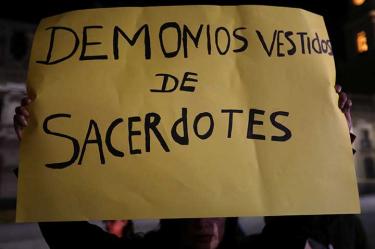 DEMONIOS VESTIDOS
DE
SACERdOTES